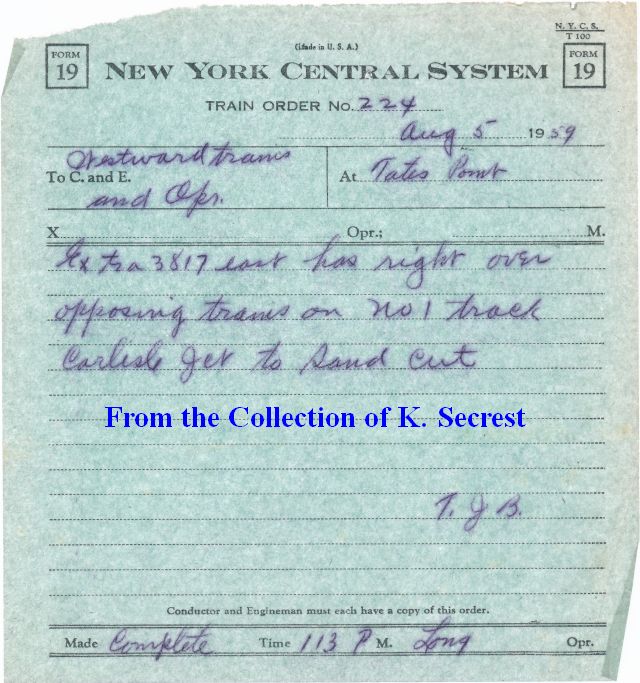 N. Y. C. S.
T 100
(Made in U. S. A.)
FORM 19 NEW YORK CENTRAL SYSTEM FORM 19
TRAIN ORDER No. 224
Aug 5 1959
Westward trains
To C. and E. At Tates Point
and Opr.
X Opr.; M.
Extra 3817 east has right over
opposing trains on No 1 track
Carlisle Jct to Sand Cut
From the Collection of K. Secrest
T. J. B.
Conductor and Engineman must each have a copy of this order.
Made Complete Time 113 P M. Long Opr.